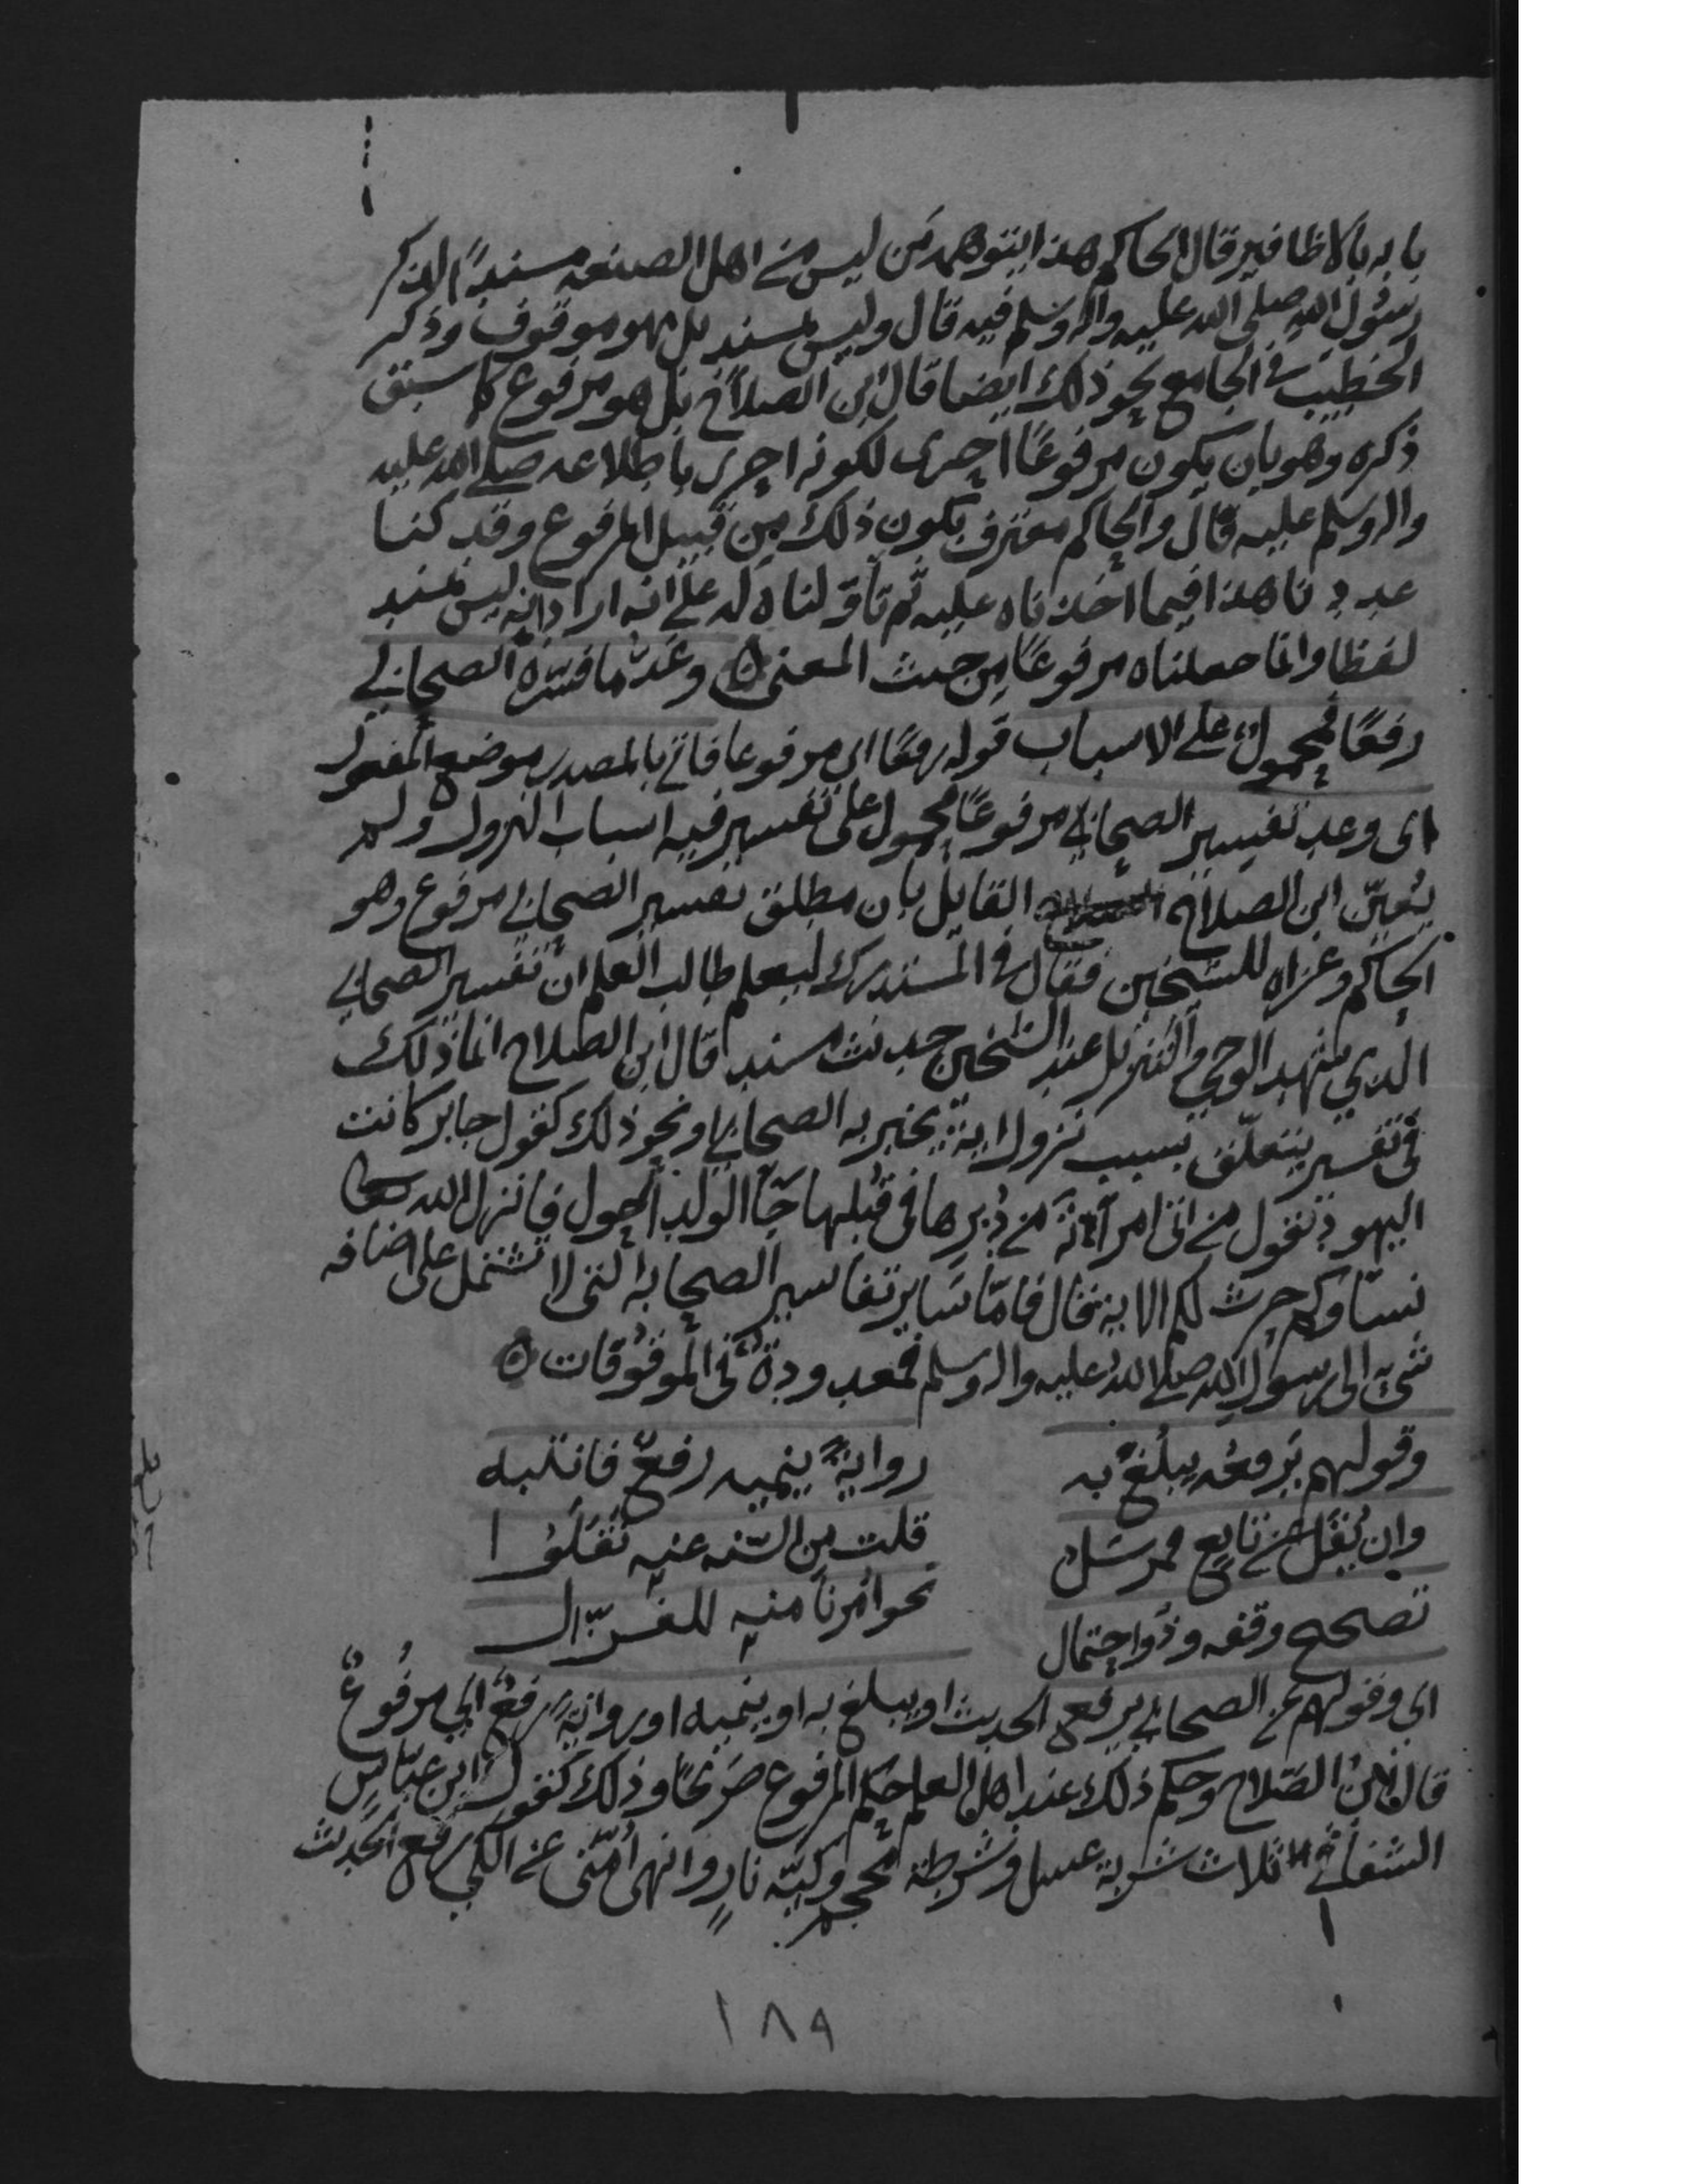 بابه بالاظافير قال الحاكم هذا يتوهمه من ليس من اهل الصنعه مسندًا لذكر
رسول الله صلى الله عليه واله وسلم فيه قال وليس بمسند بل هو موقوف وذكر
الخطيب في الجامع نحو ذلك ايضا قال ابن الصلاح بل هو مرفوع كما سبق
ذكره وهو بان يكون مرفوعًا احرى لكونه احرى باطلاعه صلى الله عليه
واله وسلم عليه قال والحاكم معترف بكون ذلك من قبيل المرفوع وقد كنا
عددنا هذا فيما اخذناه عليه ثم تأولناه له على انه اراد انه ليس بمسند
لفظا وانما جعلناه مرفوعًا من حيث المعنى ٥ وعَدُّ ما فسّره الصحابي
رفعًا فمحمولٌ على الاسباب قوله رفعًا اي مرفوعا فاتى بالمصدر موضع المفعول
اى وعد تفسير الصحابي مرفوعًا محمول على تفسير فيه اسباب النزول ولم
يُعيّن ابن الصلاح القايل بان مطلق تفسير الصحابي مرفوع وهو
الحاكم وعزاه للشيخين فقال في المستدرك ليعلم طالب العلم ان تفسير الصحابي
الذي شهد الوحي والتنزيل عند الشيخين حديث مسند قال ابن الصلاح انما ذلك
في تفسير يتعلّق بسبب نزول اية يخبر به الصحابي او نحو ذلك كقول جابر كانت
اليهود تقول من اتى امرأته من دُبرها في قُبلها جآ الولد أحول فانزل الله تعالى
نساوكم حرث لكم الاية قال فامّا سَاير تفاسير الصحابه التى لا تشتمل على اضافه
شىء الى رسول الله صلى الله عليه واله وسلم فمعدودة في الموقوفات ٥
وقولهم يَرفعُه يبلُغُ به روايةً يَنميه رفعٌ فانتبه
وان يُقَل عن تابع فمرسَلُ قلت من السّنه عنه نَقَلُوا
تصحيح وقفه وذُو احتمال نحو اُمرنا منه للغزّالي
اى وقولهم عن الصحابي يرفع الحديث او يبلغ به او ينميه او روايةً رفعٌ اي مرفُوعٌ
قال ابنُ الصّلاح وحكم ذلك عند اهل العلم حكم المرفوع صَريحًا وذلك كقول ابن عبّاس
الشفا في ثلاث شربة عسل وشرطة محجم وكيّة نارٍ وانهى اُمّتى عن الكي رفع الحديث
١٨٩